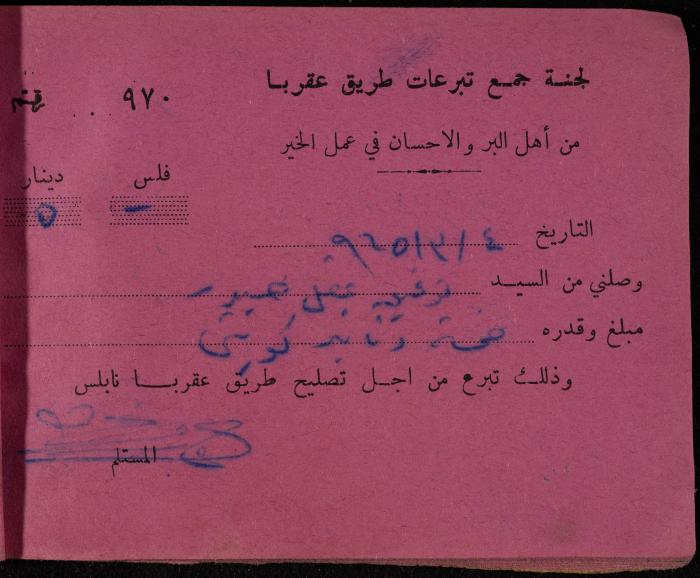 لجنة جمع تبرعات طريق عقربا
٩٧٠
من أهل البر والاحسان في عمل الخير
فلس دينار
- ٥
التاريخ ٤ / ٣ / ٩٦٥
وصلني من السيد توفيق
مبلغ وقدره خمسة دنانير كويتي
وذلك تبرع من اجل تصليح طريق عقربا نابلس
المستلم